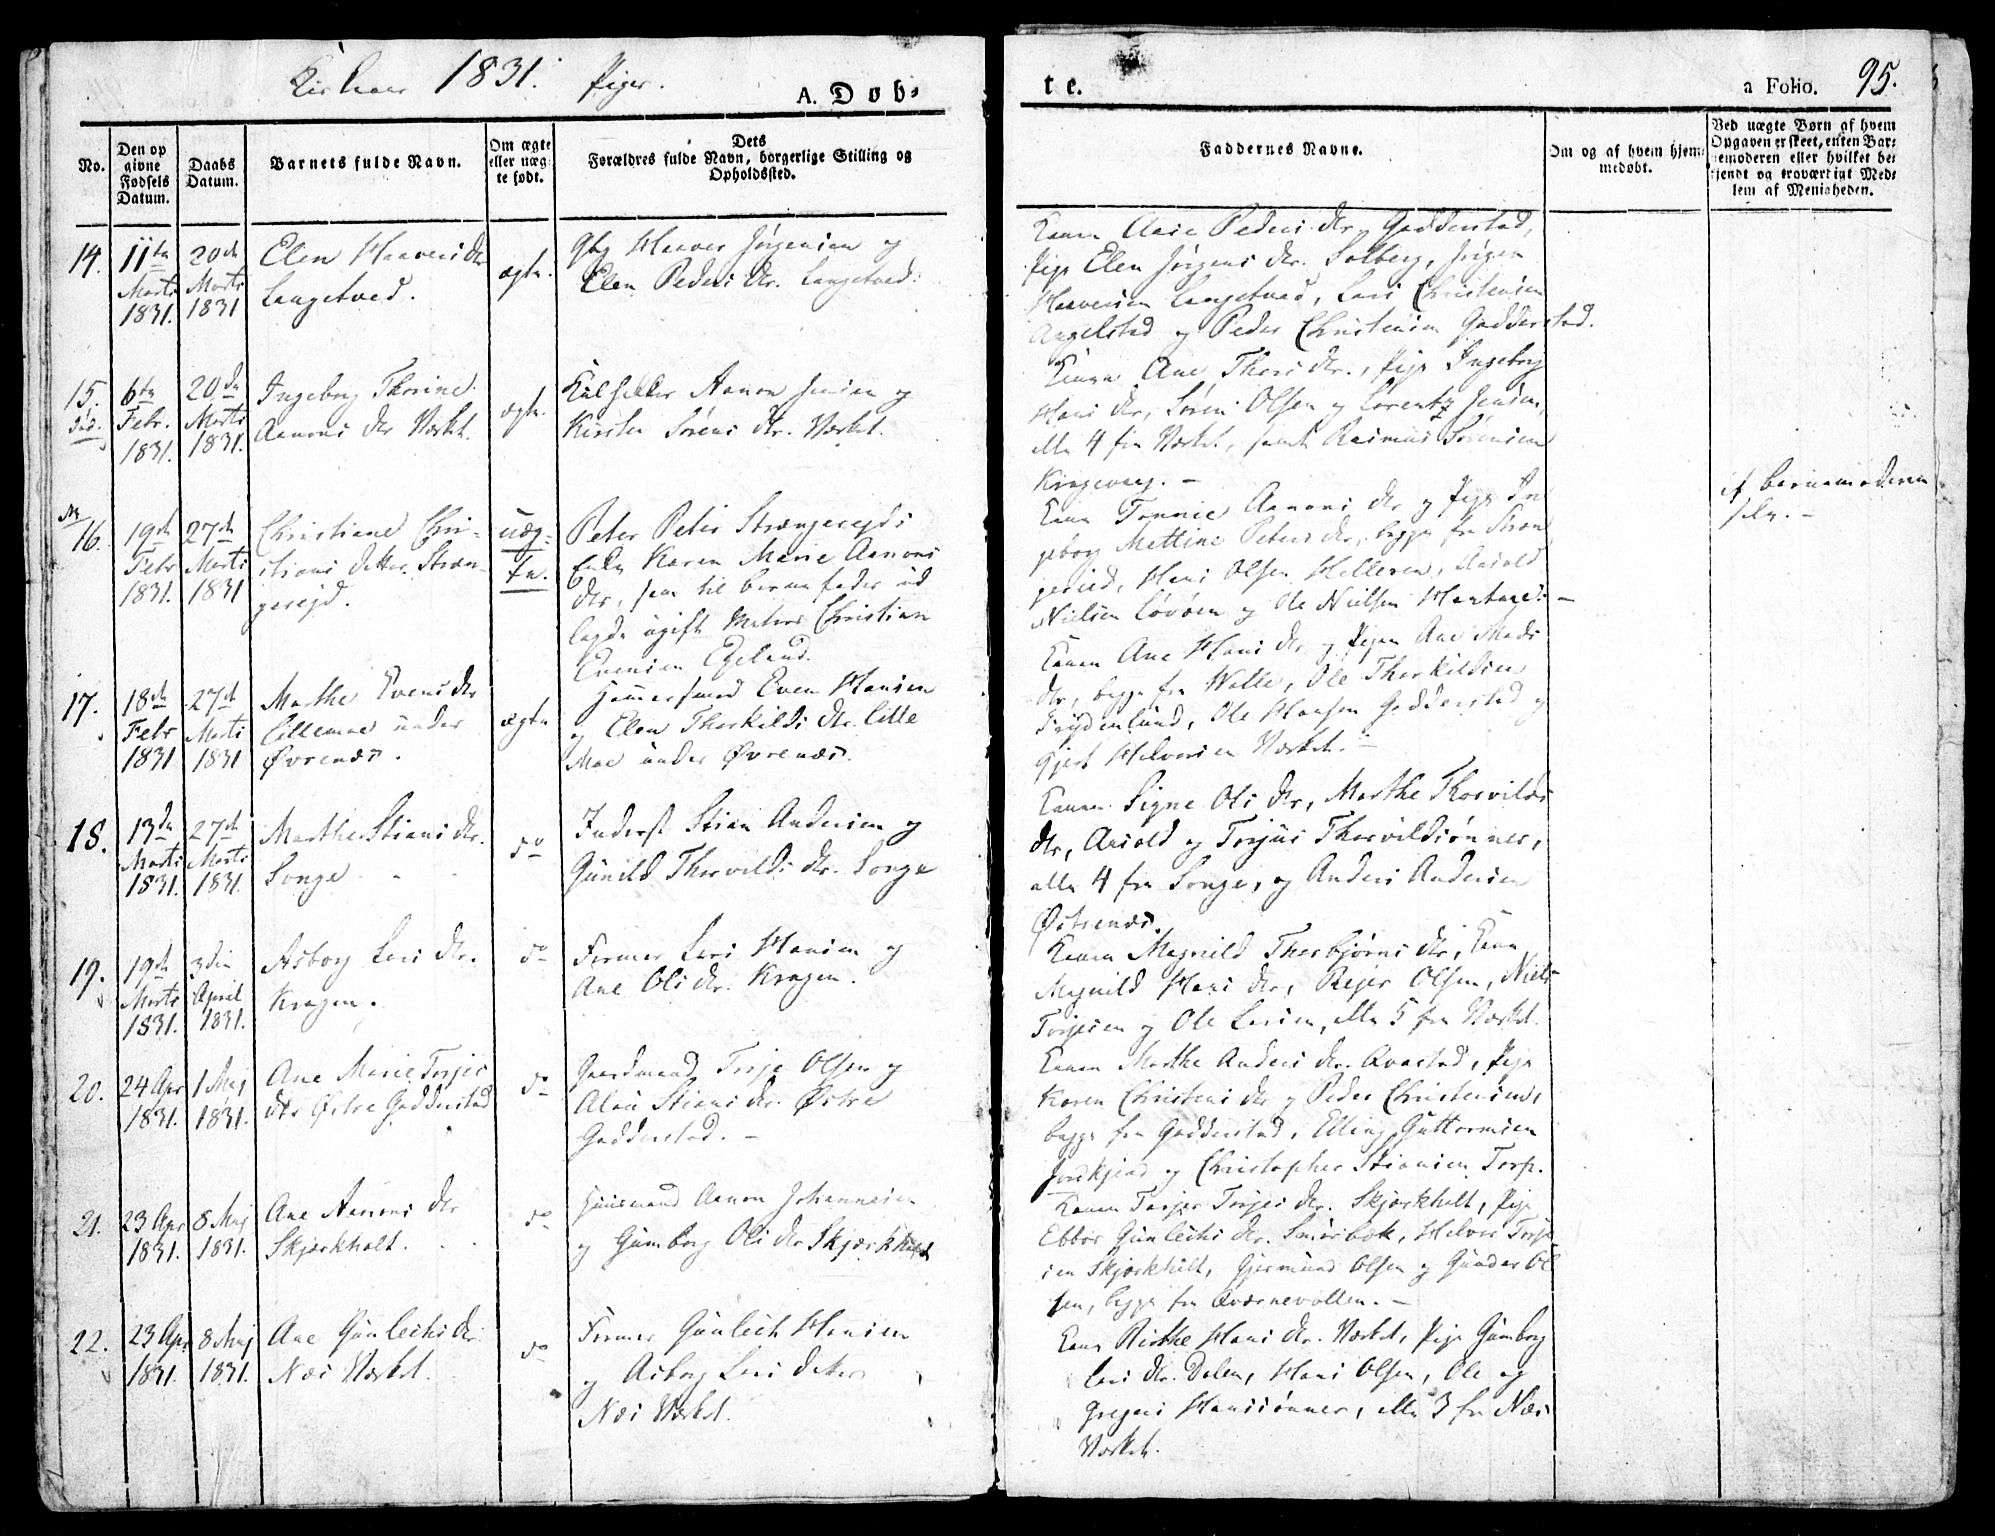 Kirkeaar 1831. Piger.
A. Døb-
te.
a Folio. 95.
No.
Den op
givne
Fødsels
Datum.
Daabs
Datum.
Barnets fulde Navn.
Om ægte
eller uæg-
te født.
Dets
Forældres fulde Navn, borgerlige Stilling og
Opholdssted.
Faddernes Navne.
Om og af hvem hjem-
medøbt.
Ved uægte Børn af hvem
Opgaven er skeet, enten Bar-
nemoderen eller hvilket be-
kjendt og troværdigt Med-
lem af Menigheden.
14.
11te
Marts
1831.
20de
Marts
1831
Elen Haavers dtr
Langetved.
ægte.
Haaver Jørgensen og
Elen Peders dtr. Langetved.
Konen Aase Peders dtr. Gadderstad,
Pige Elen Jørgens dtr. Solberg, Jørgen
Haaversen Langetved, Lars Christensen
Angelstad og Peder Christensen Gadderstad.
15.
6te
Febr.
1831.
20de
Marts
1831.
Ingeborg Thorine
Aanons dtr Værket.
ægte.
Aanon Jensen og
Kirsten Sørens dtr. Værket.
Konen Ane Thors dtr., Pige Ingeborg
Hans dtr, Søren Olsen og Lorentz Jensen,
alle 4 fra Værket, samt Rasmus Sørensen
Kragevaag. -
16.
19de
Febr
1831.
27de
Marts
1831
Christiane Chri-
stians datter. Stræn-
gerejd.
uæg-
te.
Peter Peters Strængerejds
Enke Karen Marie Aanons
dtr, som til barnefader ud
lagde ugift Matros Christian
Evensen Egeland.
Konen Tonnie Aanons dtr og Pige In
geborg Mettine Peters dtr, begge fra Stræn
gereid, Hans Olsen Helleren, Aasold
Nielsen Løvøen og Ole Nielsen
af Barnemoderen
selv. -
17.
18de
Febr
1831
27de
Marts
1831
Marthe Evens dtr
Lillemoe under
Øvrenæs.
ægte
Even Hansen
og Elen Thorkilds dtr. Lille
Moe under Øvrenæs.
Konen Ane Hans dtr og Pigen Ane Mads
dtr, begge fra Walle, Ole Thorkildsen
Frydenlund, Ole Hansen Gadderstad og
Gjert Halvorsen Værket. -
18.
13de
Marts
1831.
27de
Marts
1831.
Marthe Stians dtr.
Songe
do
Inderst Stian Andersen og
Gunild Thorvilds dtr. Songe
Konen Signe Ols dtr, Marthe Thorvilds
dtr, Asold og Torjus Thorvildsønner,
alle 4 fra Songe, og Anders Andersen
Østrenæs.
19.
19de
Marts
1831.
3die
April
1831.
Asborg Lars dtr.
Kragen.
do
Former Lars Hansen og
Ane Ols dtr. Kragen.
Konen Magnild Thorbjørns dtr, Kone
Magnild Hans dtr, Rejer Olsen, Niels
Torjesen og Ole Larsen, alle 5 fra Værket.
20.
24 Apr
1831.
1 Maj
1831.
Ane Marie Torjes
dtr Østre Gadderstad
do
Gaardmand Torje Olsen og
Stians dtr. Østre
Gadderstad. -
Konen Marthe Anders dtr. Qvastad, Pige
Karen Christens dtr og Peder Christensen,
begge fra Gadderstad, Elling Guttormsen
og Christopher Stiansen Torp.
21.
23 Apr
1831.
8 Maj
1831.
Ane Aanons dtr
Skjærkholt.
do
Huusmand Aanon Johannesen
og Gumborg Ols dtr Skjærkholt
Konen Torjer Torjes dtr. Skjærkholt, Pige
Ebbor Gunlechs dtr. Smørbæk, Halvor Torje
sen Skjærkholt, Gjermund Olsen og Gunder Ol
sen, begge fra Qværnevolden. -
22.
23 Apr
1831.
8 Maj
1831.
Ane Gunlechs dtr.
Næs Værket.
do
Former Gunlech Hansen
og Asborg Lars datter
Næs Værket.
Kone Birthe Hans dtr. Værket, Pige Gumborg
Lars dtr. Dalen, Hans Olsen, Ole og
Gregers Hanssønner, alle 3 fra Næs
Værket.